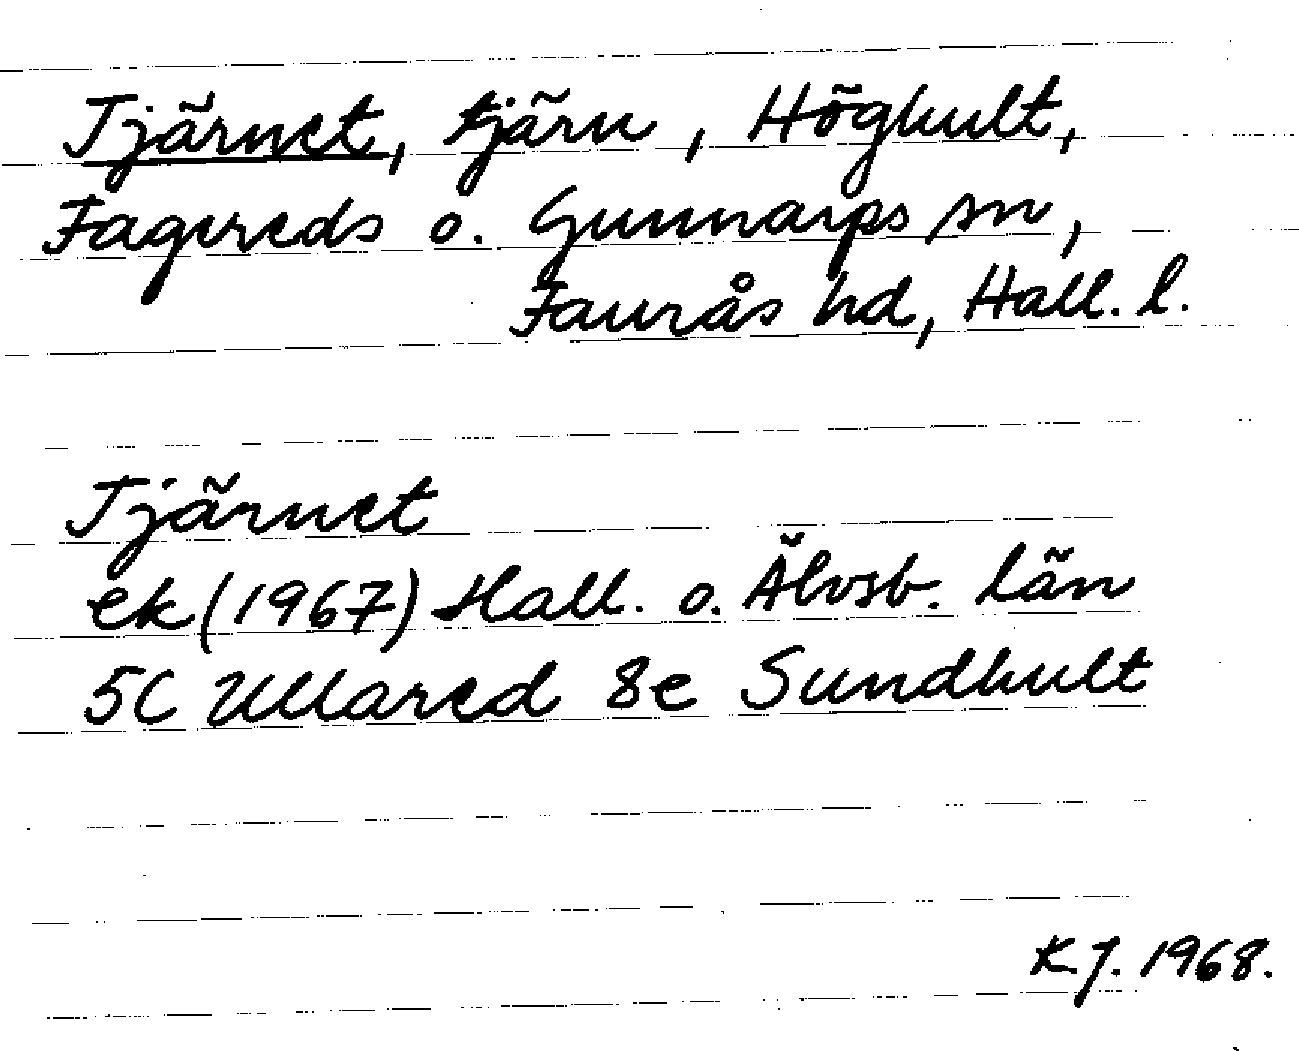 Tjärnet, tjärn, Höghult,
Fagereds o. Gunnarps sn,
Faurås hd, Hall. l.
Tjärnet
ek (1967) Hall. o. Älvsb. län
5C Ullared 8e Sundhult
K.J. 1968.